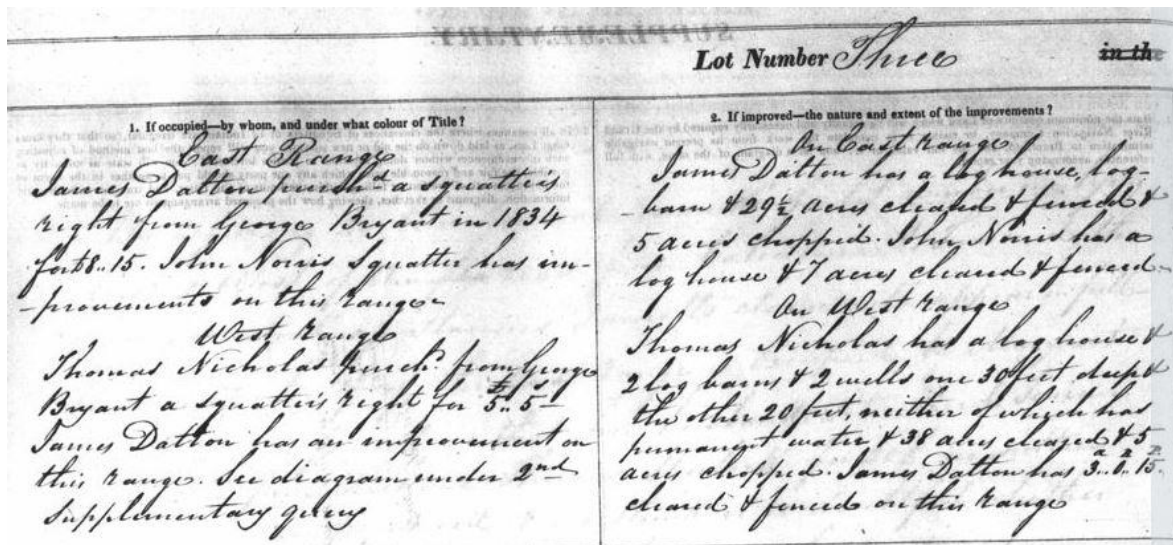 SUPPLEMENTARY.
Lot Number Three in the
1. If occupied—by whom, and under what colour of Title?
East Range
James Dalton purchd a squatter's
right from George Bryant in 1834
for £8..15. John Norris Squatter has im-
-provements on this range
West range
Thomas Nicholas purchd from George
Bryant a squatter's right for £5..5s
James Dalton has an improvement on
this range. See diagram under 2nd
Supplementary query
2. If improved—the nature and extent of the improvements?
On East range
James Dalton has a log house, log-
-barn & 29½ acres cleared & fenced &
5 acres chopped. John Norris has a
log house & 7 acres cleared & fenced
On West range
Thomas Nicholas has a log house &
2 log barns & 2 wells one 30 feet deep &
the other 20 feet, neither of which has
permanent water & 38 acres cleared & 5
acres chopped. James Dalton has 3a..0r..15p.
cleared & fenced on this range